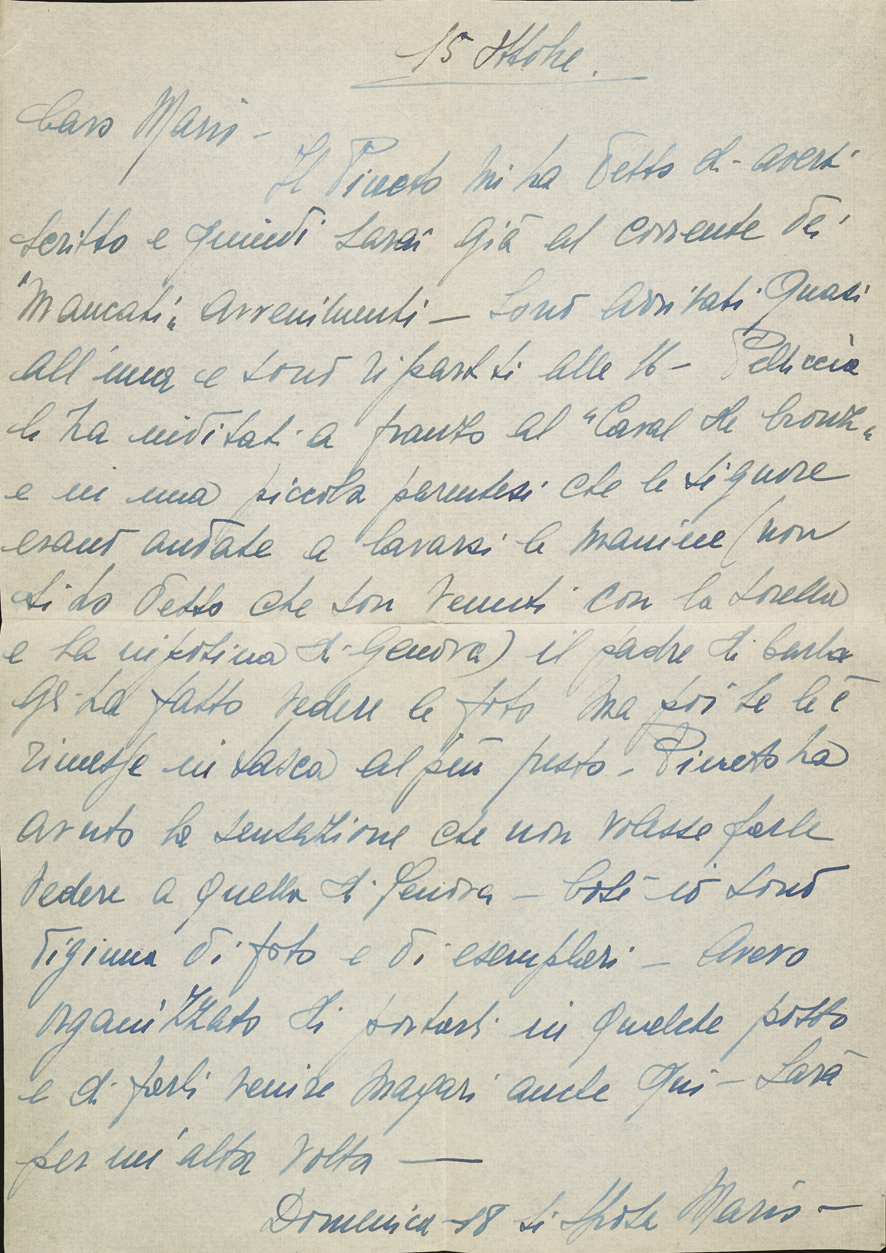 15 Ottobre.
Caro Mario -
Il Pineto mi ha detto di averti
scritto e quindi sarai già al corrente dei
"Mancati" avvenimenti — Sono arrivati quasi
all'una e sono ripartiti alle 16 - Pelliccia
li ha invitati a pranzo al "Caval di bronzo"
e in una piccola parentesi che le signore
erano andate a lavarsi le manine (non
ti ho detto che son venuti con la sorella
e la nipotina di Genova) il padre di
gli ha fatto vedere le foto ma poi se le è
rimesse in tasca al più presto - Pineto ha
avuto la sensazione che non volesse farle
vedere a quella di Genova — Così io sono
digiuna di foto e di esemplari — Avevo
organizzato di portarli in qualche posto
e di farli venire magari anche qui - Sarà
per un'altra volta —
Domenica 18 si sposa Mario -